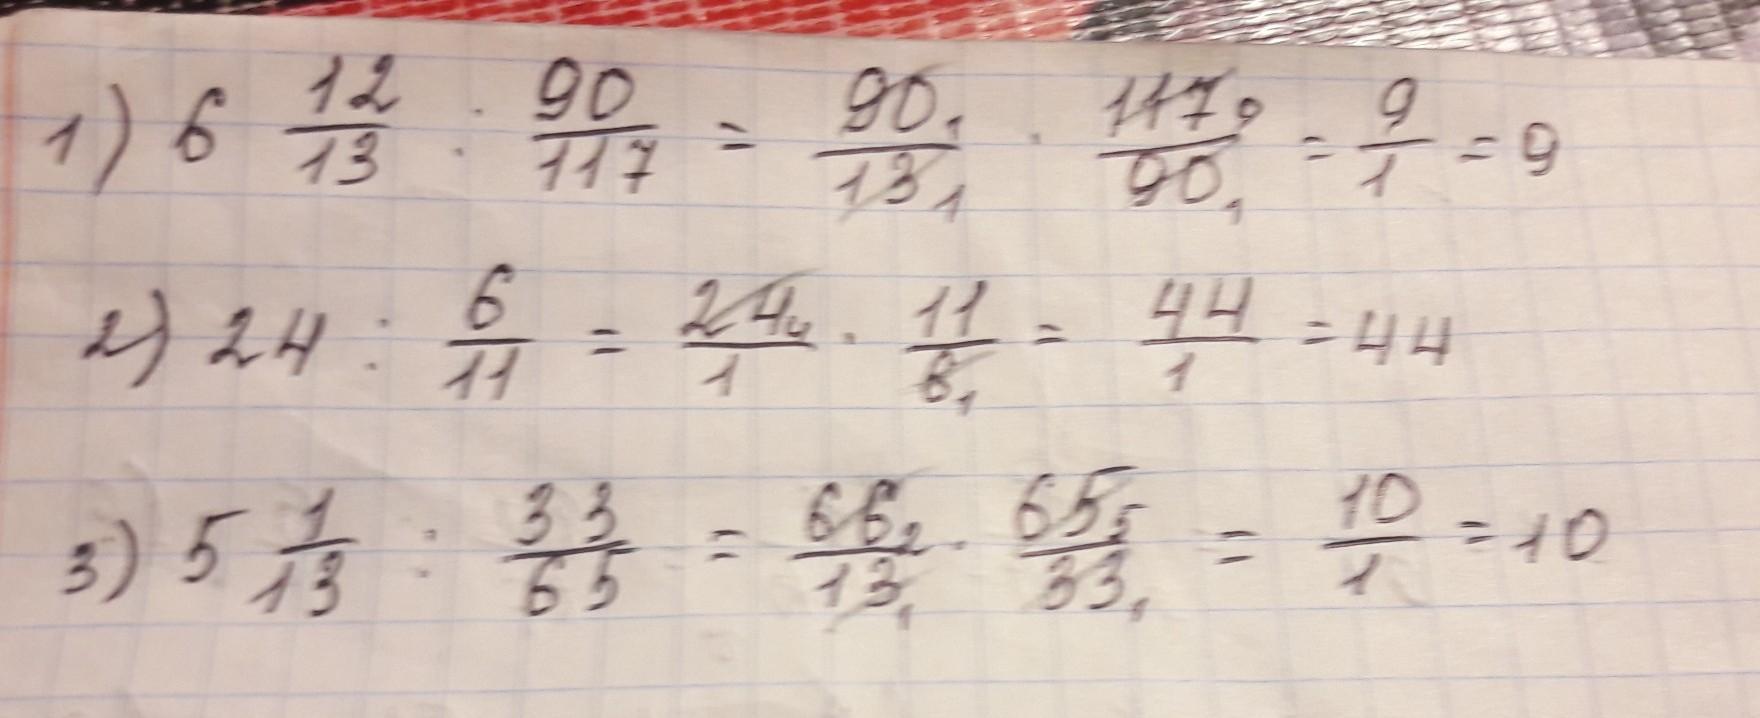 1) 6 12/13 : 90/117 = 90 1/13 1 · 117 9/90 1 = 9/1 = 9
2) 24 : 6/11 = 24 4/1 · 11/6 1 = 44/1 = 44
3) 5 1/13 : 33/65 = 66 2/13 1 · 65 5/33 1 = 10/1 = 10